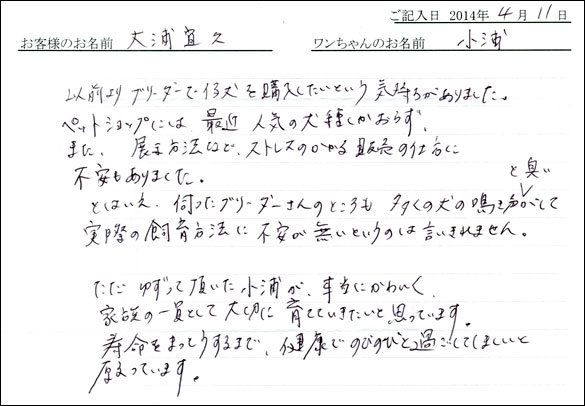 ご記入日 2014年 4月 11日
お客様のお名前 大浦宜久 ワンちゃんのお名前 小浦
以前より ブリーダーで仔犬を購入したいという気持ちがありました。
ペットショップには 最近 人気の犬種しかおらず、
また、展示方法など、ストレスのかかる販売の仕方に
不安もありました。
とはいえ、伺ったブリーダーさんのところも 多くの犬の鳴き声と臭いがして
実際の飼育方法に 不安が無いというのは言いきれません。
ただ ゆずって頂いた小浦が、本当にかわいく、
家族の一員として 大切に育てていきたいと思っています。
寿命をまっとうするまで、健康でのびのびと過ごしてほしいと
願っています。